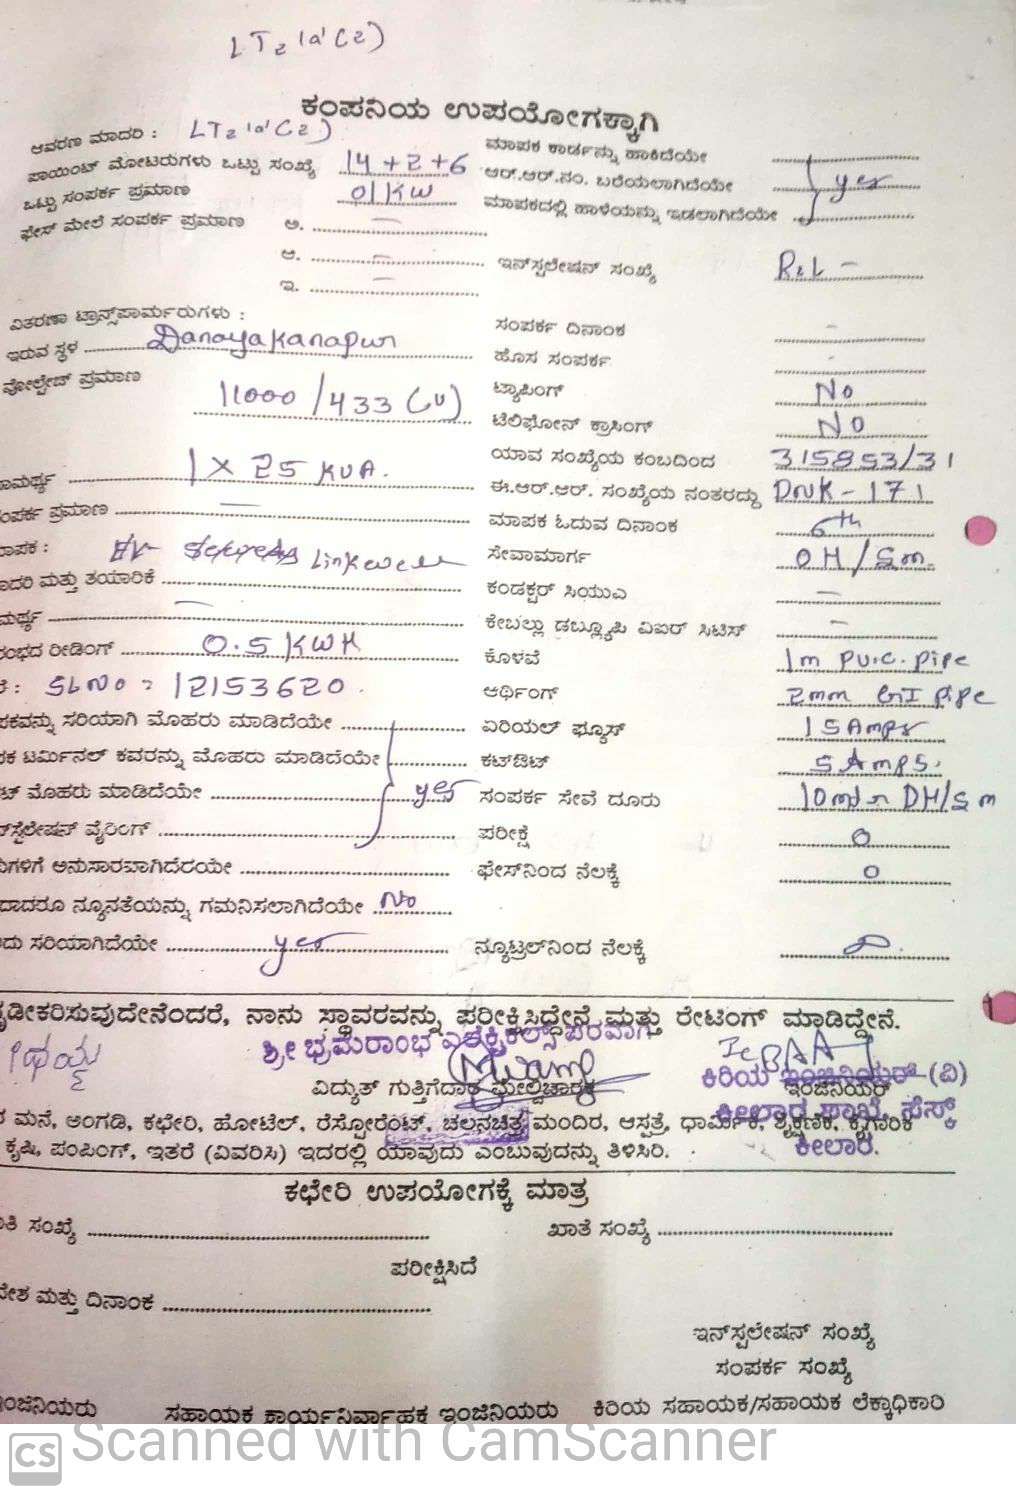 LT2 'a' (2)
ಕಂಪನಿಯ ಉಪಯೋಗಕ್ಕಾಗಿ
ಆವರಣ ಮಾದರಿ : LT2 'a' (2)
ಪಾಯಿಂಟ್ ಮೋಟರುಗಳು ಒಟ್ಟು ಸಂಖ್ಯೆ 14+2+6
ಒಟ್ಟು ಸಂಪರ್ಕ ಪ್ರಮಾಣ 01 KW
ಫೇಸ್ ಮೇಲೆ ಸಂಪರ್ಕ ಪ್ರಮಾಣ ಅ. –
ಆ. –
ಇ. –
ವಿತರಣಾ ಟ್ರಾನ್ಸ್‌ಪಾರ್ಮರುಗಳು :
ಇರುವ ಸ್ಥಳ Danayakanapur
ವೋಲ್ಟೇಜ್ ಪ್ರಮಾಣ
11000/433 (U)
ಾಮರ್ಥ್ಯ 1 X 25 KVA.
ಂಪರ್ಕ ಪ್ರಮಾಣ –
ಾಪಕ : Linkwell
ಾದರಿ ಮತ್ತು ತಯಾರಿಕೆ
ಮರ್ಥ್ಯ –
ಂಭದ ರೀಡಿಂಗ್ 0.5 KWH
: SL No = 12153620.
ಪಕವನ್ನು ಸರಿಯಾಗಿ ಮೊಹರು ಮಾಡಿದೆಯೇ
ಕ ಟರ್ಮಿನಲ್ ಕವರನ್ನು ಮೊಹರು ಮಾಡಿದೆಯೇ
ಟ್ ಮೊಹರು ಮಾಡಿದೆಯೇ yes
ನ್‌ಸ್ಟಲೇಷನ್ ವೈರಿಂಗ್
ುಗಳಿಗೆ ಅನುಸಾರವಾಗಿದೆರಯೇ
ದಾದರೂ ನ್ಯೂನತೆಯನ್ನು ಗಮನಿಸಲಾಗಿದೆಯೇ No
ದು ಸರಿಯಾಗಿದೆಯೇ yes
ಮಾಪಕ ಕಾರ್ಡನ್ನು ಹಾಕಿದೆಯೇ
ಆರ್.ಆರ್.ನಂ. ಬರೆಯಲಾಗಿದೆಯೇ yes
ಮಾಪಕದಲ್ಲಿ ಹಾಳೆಯನ್ನು ಇಡಲಾಗಿದೆಯೇ
ಇನ್‌ಸ್ಟಲೇಷನ್ ಸಂಖ್ಯೆ R&L –
ಸಂಪರ್ಕ ದಿನಾಂಕ –
ಹೊಸ ಸಂಪರ್ಕ -
ಟ್ಯಾಪಿಂಗ್ No
ಟೆಲಿಫೋನ್ ಕ್ರಾಸಿಂಗ್ No
ಯಾವ ಸಂಖ್ಯೆಯ ಕಂಬದಿಂದ 315853/31
ಈ.ಆರ್.ಆರ್. ಸಂಖ್ಯೆಯ ನಂತರದ್ದು DNK - 171
ಮಾಪಕ ಓದುವ ದಿನಾಂಕ 6th
ಸೇವಾಮಾರ್ಗ OH/Sm.
ಕಂಡಕ್ಟರ್ ಸಿಯುಎ –
ಕೇಬಲ್ಲು ಡಬ್ಲ್ಯೂಪಿ ವಿಐರ್ ಸಿಟಿಸ್ –
ಕೊಳವೆ 1m PVC. Pipe
ಆರ್ಥಿಂಗ್ 2mm GI Pipe
ಏರಿಯಲ್ ಫ್ಯೂಸ್ 15 Amps
ಕಟ್‌ಔಟ್ 5 Amps.
ಸಂಪರ್ಕ ಸೇವೆ ದೂರು OH/Sm
ಪರೀಕ್ಷೆ 0
ಫೇಸ್‌ನಿಂದ ನೆಲಕ್ಕೆ 0
ನ್ಯೂಟ್ರಲ್‌ನಿಂದ ನೆಲಕ್ಕೆ
ಢೀಕರಿಸುವುದೇನೆಂದರೆ, ನಾನು ಸ್ಥಾವರವನ್ನು ಪರೀಕ್ಷಿಸಿದ್ದೇನೆ ಮತ್ತು ರೇಟಿಂಗ್ ಮಾಡಿದ್ದೇನೆ.
ಶ್ರೀ ಭ್ರಮರಾಂಭ ಎಲೆಕ್ಟ್ರಿಕಲ್ಸ್ ಪರವಾಗಿ
ವಿದ್ಯುತ್ ಗುತ್ತಿಗೆದಾರ ಮೇಲ್ವಿಚಾರಕ
ಕಿರಿಯ ಇಂಜಿನಿಯರ್ (ವಿ)
ಇಂಜಿನಿಯರ್
ಕೀಲಾರ ಶಾಖೆ, ಸೆಸ್ಕ್
ಕೀಲಾರ.
ರ ಮನೆ, ಅಂಗಡಿ, ಕಛೇರಿ, ಹೋಟೆಲ್, ರೆಸ್ಟೋರೆಂಟ್, ಚಲನಚಿತ್ರ ಮಂದಿರ, ಆಸ್ಪತ್ರೆ, ಧಾರ್ಮಿಕ, ಶೈಕ್ಷಣಿಕ, ಕೈಗಾರಿಕೆ
ಕೃಷಿ, ಪಂಪಿಂಗ್, ಇತರೆ (ವಿವರಿಸಿ) ಇದರಲ್ಲಿ ಯಾವುದು ಎಂಬುವುದನ್ನು ತಿಳಿಸಿರಿ.
ಕಛೇರಿ ಉಪಯೋಗಕ್ಕೆ ಮಾತ್ರ
ತಿ ಸಂಖ್ಯೆ ಖಾತೆ ಸಂಖ್ಯೆ
ಪರೀಕ್ಷಿಸಿದೆ
ದೇಶ ಮತ್ತು ದಿನಾಂಕ
ಇನ್‌ಸ್ಟಲೇಷನ್ ಸಂಖ್ಯೆ
ಸಂಪರ್ಕ ಸಂಖ್ಯೆ
ಇಂಜಿನಿಯರು ಸಹಾಯಕ ಕಾರ್ಯನಿರ್ವಾಹಕ ಇಂಜಿನಿಯರು ಕಿರಿಯ ಸಹಾಯಕ/ಸಹಾಯಕ ಲೆಕ್ಕಾಧಿಕಾರಿ
CS Scanned with CamScanner